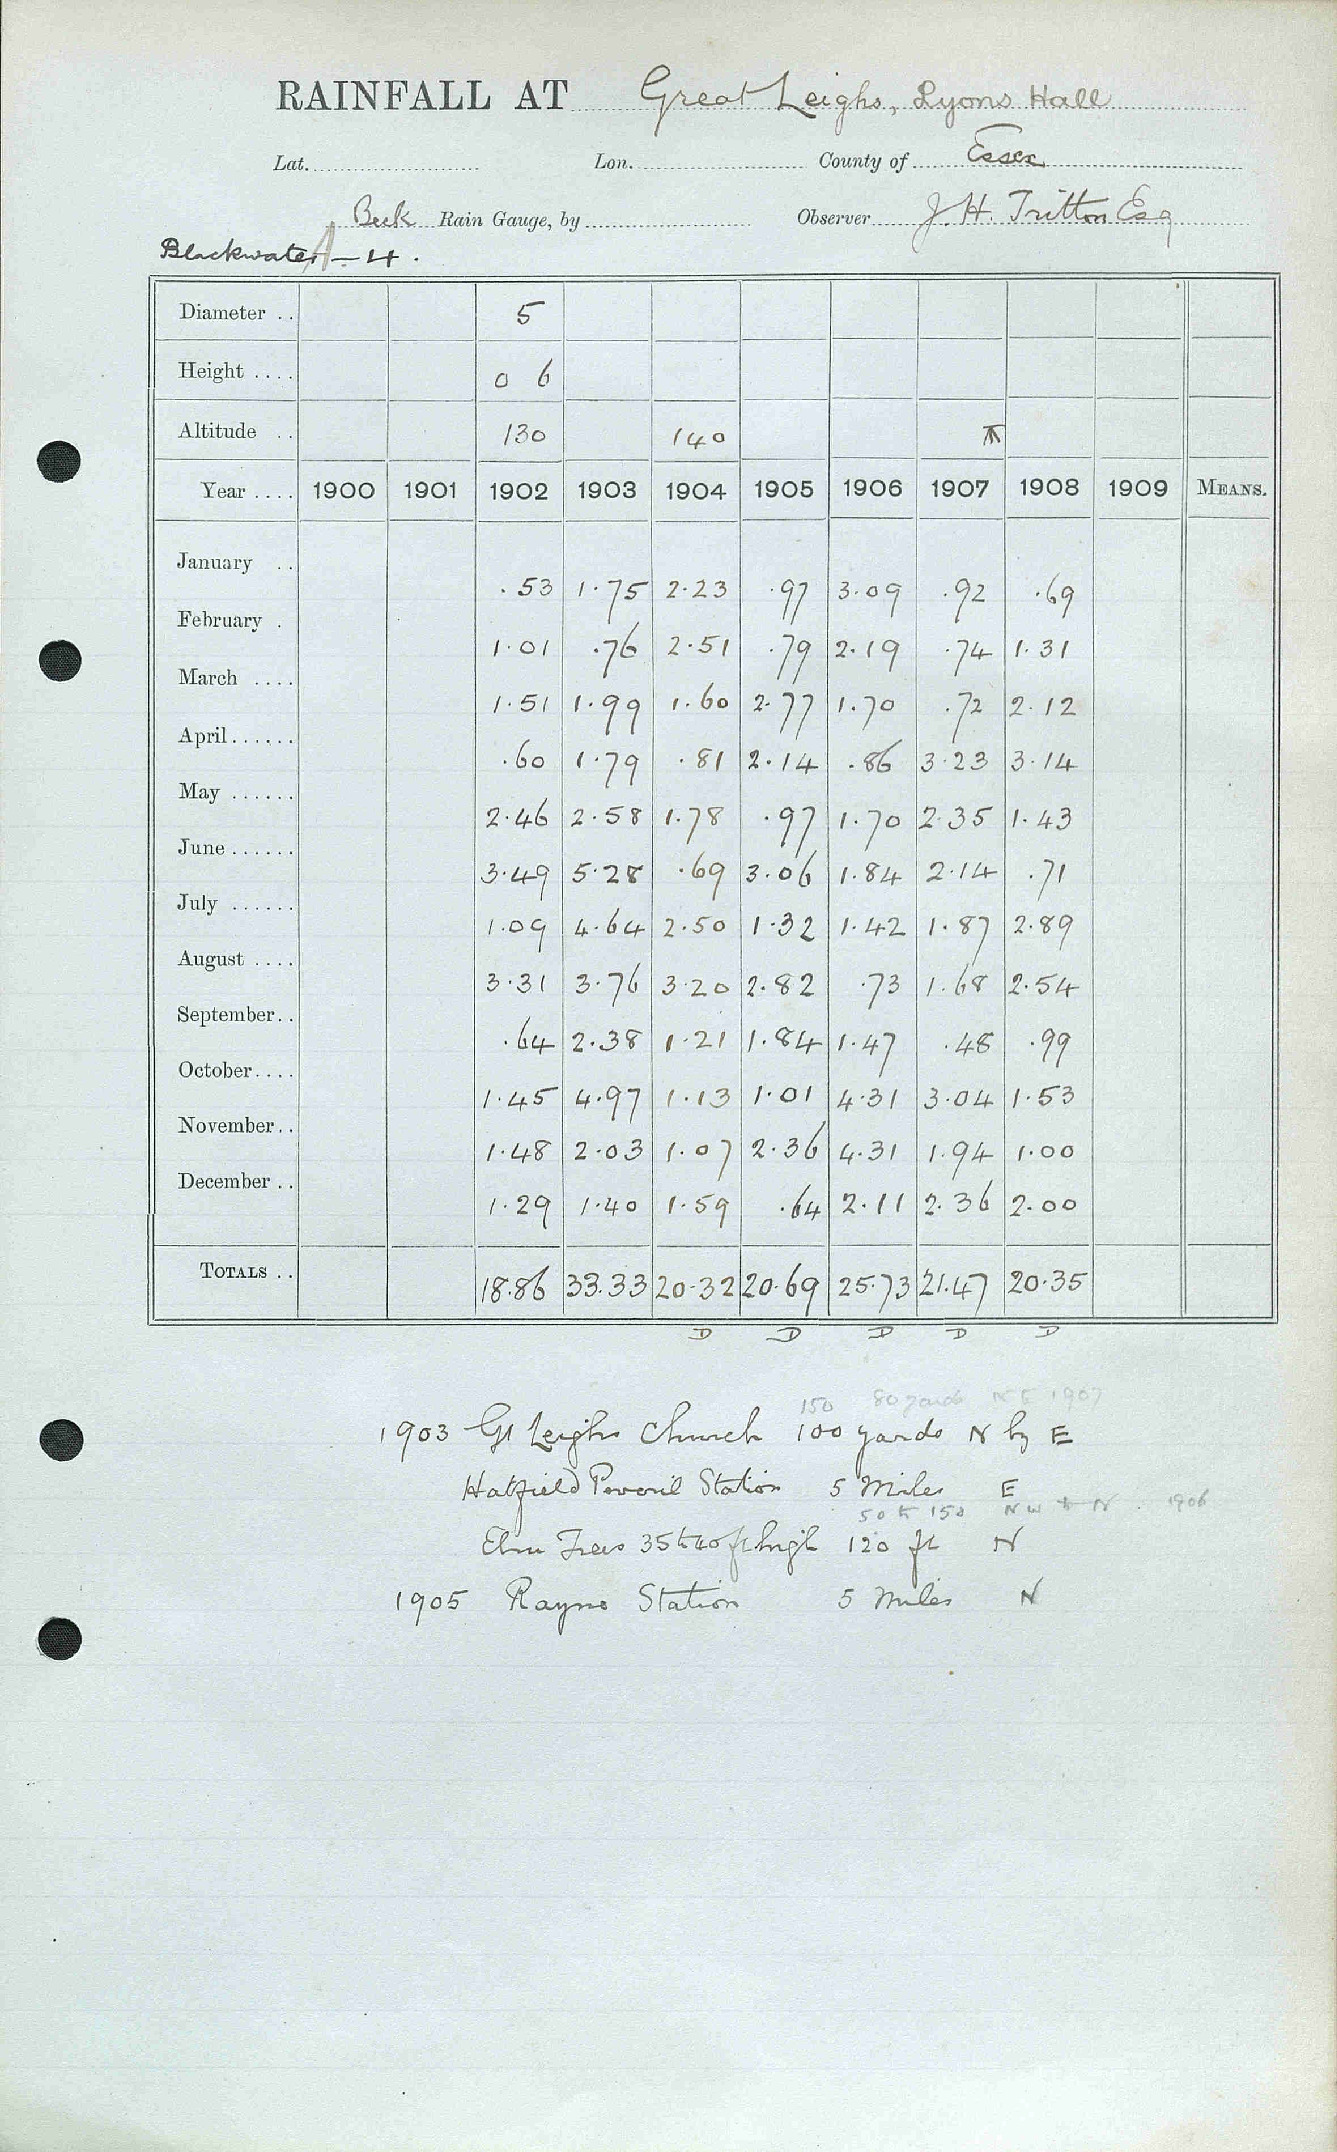 RAINFALL AT Great Leighs, Lyons Hall
Lat. Lon. County of Essex
Beck Rain Gauge, by Observer J. H. Tritton Esq
Blackwater A-4.
Diameter .. 5
Height .... 0 6
Altitude .. 130 140
Year .... 1900 1901 1902 1903 1904 1905 1906 1907 1908 1909 MEANS.
January .. .53 1.75 2.23 .97 3.09 .92 .69
February . 1.01 .76 2.51 .79 2.19 .74 1.31
March .... 1.51 1.99 1.60 2.77 1.70 .72 2.12
April...... .60 1.79 .81 2.14 .86 3.23 3.14
May ...... 2.46 2.58 1.78 .97 1.70 2.35 1.43
June ...... 3.49 5.28 .69 3.06 1.84 2.14 .71
July ...... 1.09 4.64 2.50 1.32 1.42 1.87 2.89
August .... 3.31 3.76 3.20 2.82 .73 1.68 2.54
September.. .64 2.38 1.21 1.84 1.47 .48 .99
October.... 1.45 4.97 1.13 1.01 4.31 3.04 1.53
November.. 1.48 2.03 1.07 2.36 4.31 1.94 1.00
December .. 1.29 1.40 1.59 .64 2.11 2.36 2.00
TOTALS .. 18.86 33.33 20.32 20.69 25.73 21.47 20.35
D D D D D
150 80 yards N E 1907
1903 Gt Leighs Church 100 yards N by E
Hatfield Peveril Station 5 Miles E
50 to 150 NW to N. 1906
Elm Trees 35 to 40 ft high 120 ft N
1905 Rayne Station 5 Miles N